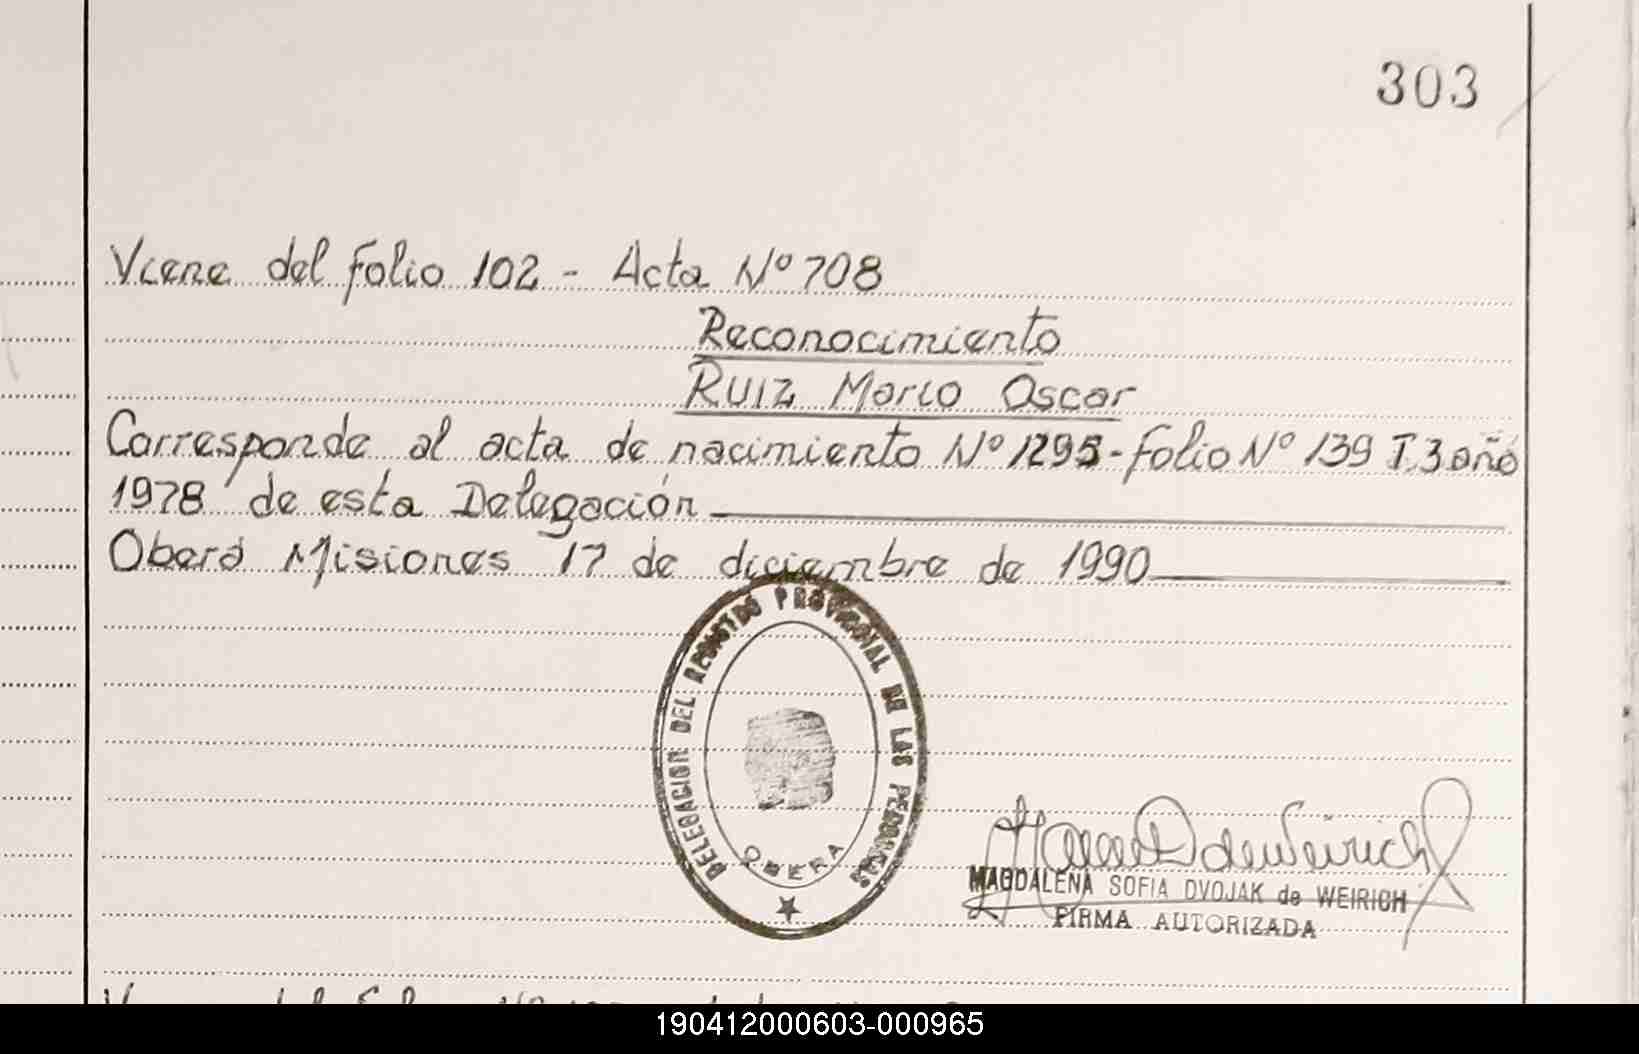 303
Viene del folio 102 - Acta Nº 708
Reconocimiento
RUIZ Mario Oscar
Corresponde al acta de nacimiento Nº 1295 - folio Nº 139 T.3 año
1978 de esta Delegación
Oberá Misiones 17 de diciembre de 1990
DELEGACION DEL REGISTRO PROVINCIAL DE LAS PERSONAS
OBERA
MAGDALENA SOFIA DVOJAK de WEIRICH
FIRMA AUTORIZADA
190412000603-000965